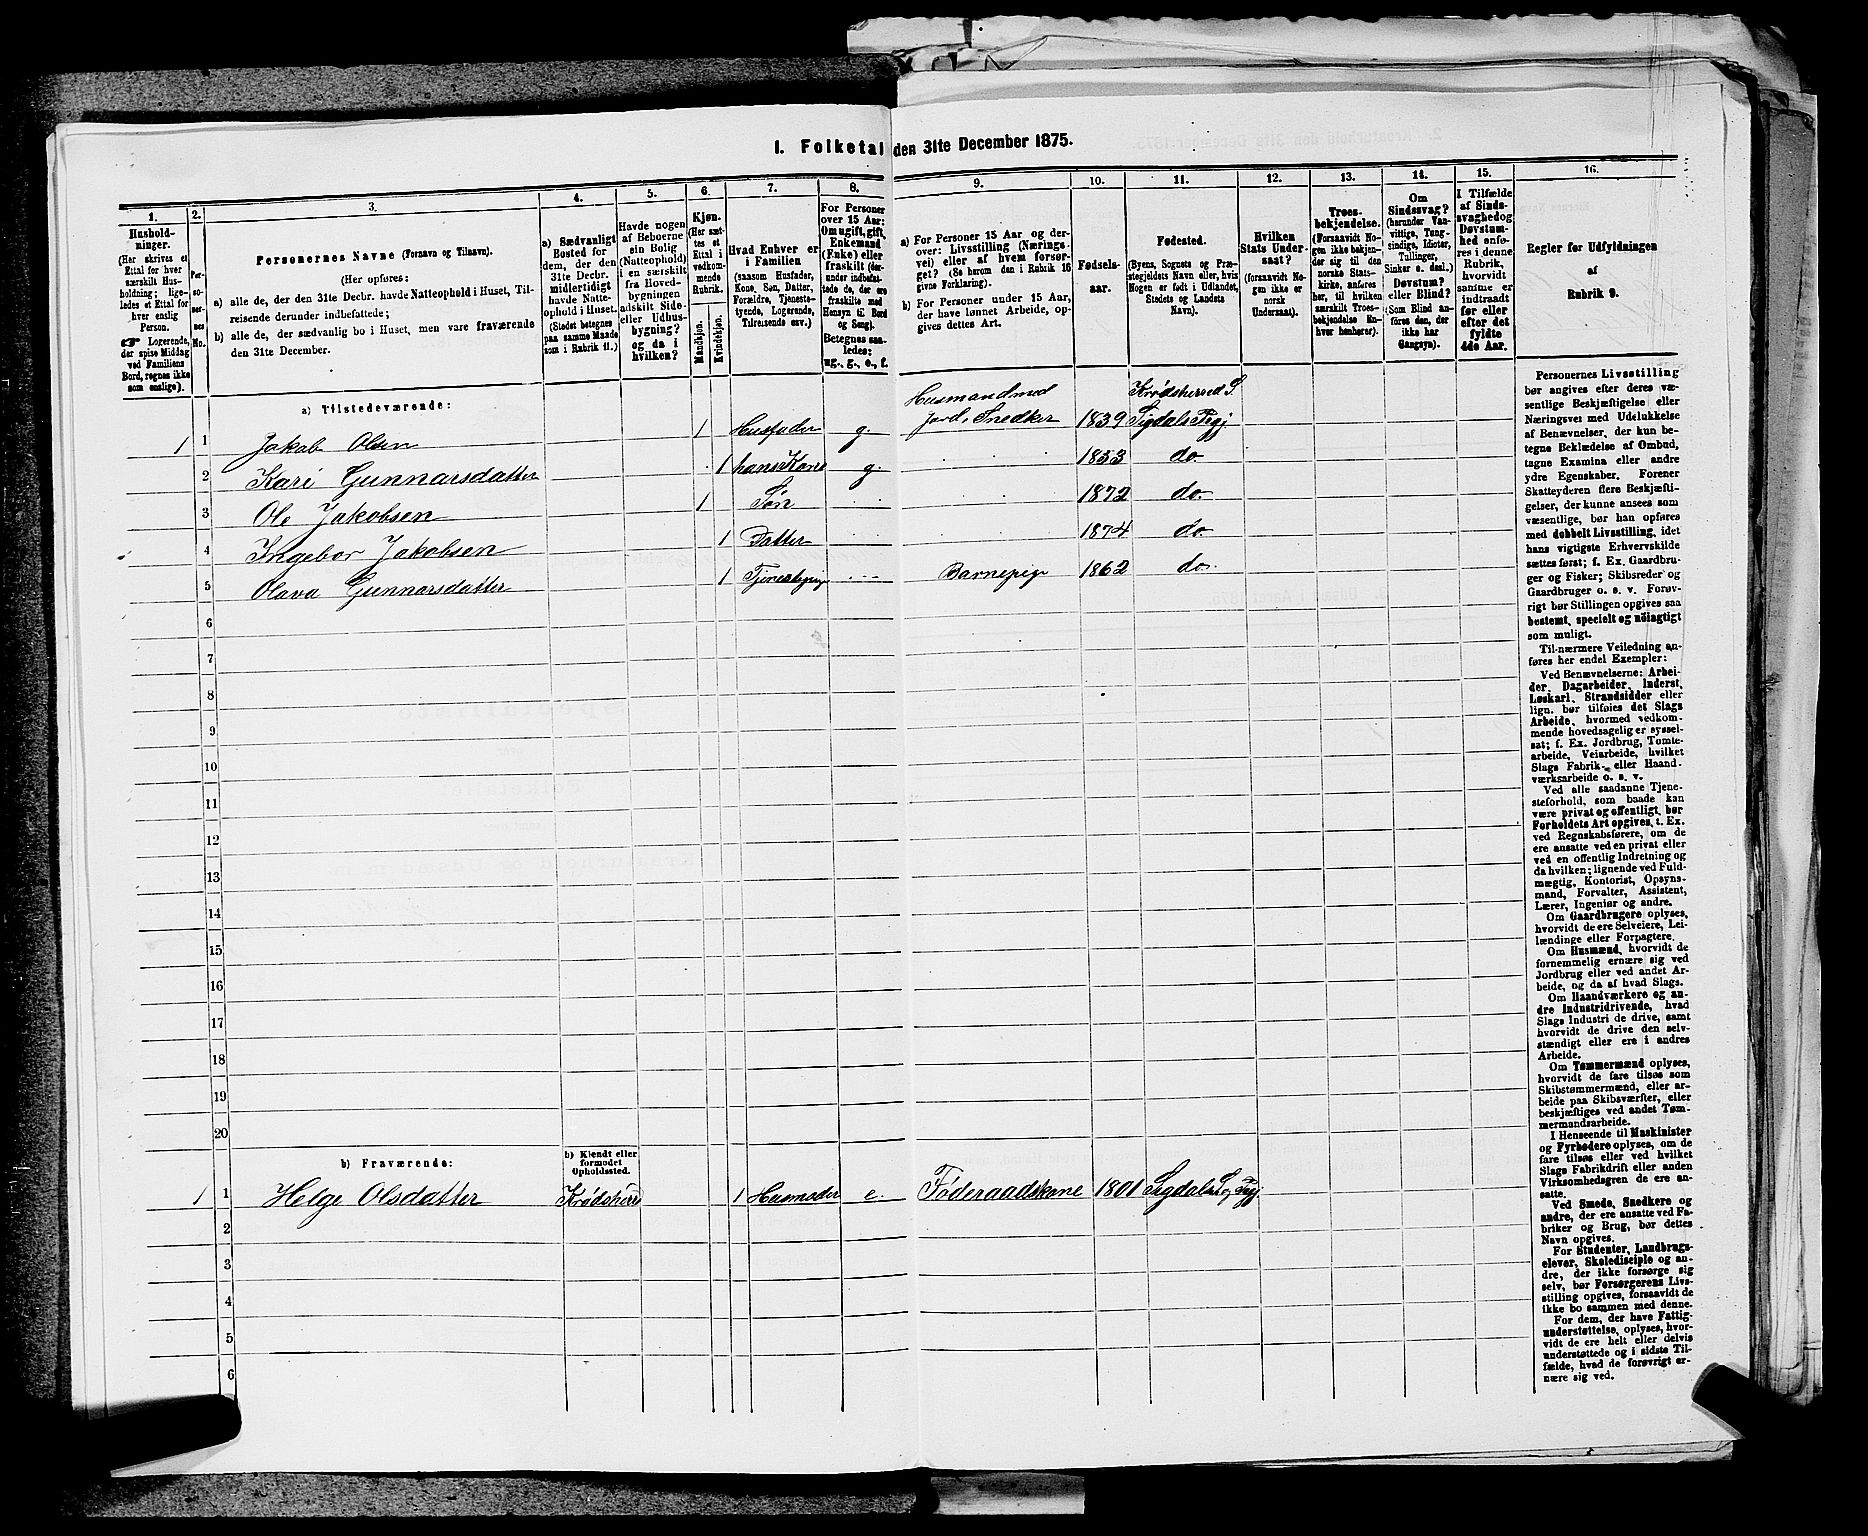 I. Folketal den 31te December 1875.
1. 2. 3. 4. 5. 6. 7. 8. 9. 10. 11. 12. 13. 14. 15. 16.
Hushold-
ninger.
(Her skrives et
Ettal for hver
særskilt Hus-
holdning; lige-
ledes et Ettal for
hver enslig
Person.
☞ Logerende,
der spise Middag
ved Familiens
Bord, regnes ikke
som enslige).
Per-
so-
ner-
nes
No.
Personernes Navne (Fornavn og Tilnavn).
(Her opføres:
a) alle de, der den 31te Decbr. havde Natteophold i Huset, Til-
reisende derunder indbefattede;
b) alle de, der sædvanlig bo i Huset, men vare fraværende
den 31te December.
a) Sædvanligt
Bosted for
dem, der den
31te Decbr.
midlertidigt
havde Natte-
ophold i Huset.
(Stedet betegnes
paa samme Maade
som i Rubrik 11.)
Havde nogen
af Beboerne
sin Bolig
(Natteophold)
i en særskilt
fra Hoved-
bygningen
adskilt Side-
eller Udhus-
bygning?
og da i
hvilken?
Kjøn.
(Her sæt-
tes et
Ettal i
vedkom-
mende
Rubrik.
Mandkjøn.
Kvindekjøn.
Hvad Enhver er
i Familien
(saasom Husfader,
Kone, Søn, Datter,
Forældre, Tjeneste-
tyende, Logerende,
Tilreisende osv.)
For Personer
over 15 Aar:
Om ugift, gift,
Enkemand
(Enke) eller
fraskilt (der-
under indbefat-
tede de, der ere
fraskilte med
Hensyn til Bord
og Seng).
Betegnes saa-
ledes:
ug., g., e., f.
a) For Personer 15 Aar og der-
over: Livsstilling (Nærings-
vei) eller af hvem forsør-
get? (Se herom den i Rubrik 16
givne Forklaring).
b) For Personer under 15 Aar,
der have lønnet Arbeide, op-
gives dettes Art.
Fødsels-
aar.
Fødested.
(Byens, Sognets og Præ-
stegjeldets Navn eller, hvis
Nogen er født i Udlandet,
Stedets og Landets
Navn).
Hvilken
Stats Under-
saat?
(forsaavidt No-
gen ikke er
norsk
Undersaat).
Troes-
bekjendelse.
(Forsaavidt No-
gen ikke bekjen-
der sig til den
norske Stats-
kirke, anføres
her, til hvilken
særskilt Troes-
bekjendelse En-
hver henhører).
Om
Sindssvag?
(herunder Van-
vittige, Tung-
sindige, Idioter,
Tullinger,
Sinker o. desl.)
Døvstum?
eller Blind?
(Som Blind an-
føres den, der
ikke har
Gangsyn).
I Tilfælde
af Sinds-
svaghed og
Døvstum-
hed anfø-
res i denne
Rubrik,
hvorvidt
samme er
indtraadt
før eller
efter det
fyldte
4de Aar.
Regler for Udfyldningen
af
Rubrik 9.
a) Tilstedeværende:
1 1 Jakob Olsen 1 Husfader g. Husmand med
Jord, Snedker 1839 Krødsherred S.
Sigdals Pregj
2 Kari Gunnarsdatter 1 hans Kone g. 1853 do
3 Ole Jakobsen 1 Søn 1872 do
4 Ingebor Jakobsen 1 Datter 1874 do
5 Olava Gunnarsdatter 1 Tjenestepige Barnepige 1862 do
6
7
8
9
10
11
12
13
14
15
16
17
18
19
20
b) Fraværende:
b) Kjendt eller
formodet
Opholdssted.
1 1 Helge Olsdatter Krødsherr 1 Husmoder e. Føderaadskone 1801 Sigdals S. og Pgj
2
3
4
5
6
Personernes Livsstilling
bør angives efter deres væ-
sentlige Beskjæftigelse eller
Næringsvei med Udelukkelse
af Benævnelser, der kun be-
tegne Beklædelse af Ombud,
tagne Examina eller andre
ydre Egenskaber. Forener
Skatteyderen flere Beskjæfti-
gelser, der kunne ansees som
væsentlige, bør han opføres
med dobbelt Livsstilling, idet
hans vigtigste Erhvervskilde
sættes først; f. Ex. Gaardbru-
ger og Fisker; Skibsreder og
Gaardbruger o. s. v. Forøv-
rigt bør Stillingen opgives saa
bestemt, specielt og nøiagtigt
som muligt.
Til nærmere Veiledning an-
føres her endel Exempler:
Ved Benævnelserne: Arbei-
der, Dagarbeider, Inderst,
Løskarl, Strandsidder eller
lign. bør tilføies det Slags
Arbeide, hvormed vedkom-
mende hovedsagelig er syssel-
sat; f. Ex. Jordbrug, Tomte-
arbeide, Veiarbeide, hvilket
Slags Fabrik- eller Haand-
værksarbeide o. s. v.
Ved alle saadanne Tjene-
steforhold, som baade kan
være privat og offentligt, bør
Forholdets Art opgives, t. Ex.
ved Regnskabsførere, om de
ere ansatte ved en privat eller
ved en offentlig Indretning og
da hvilken; lignende ved Fuld-
mægtig, Kontorist, Opsyns-
mand, Forvalter, Assistent,
Lærer, Ingeniør og andre.
Om Gaardbrugere oplyses,
hvorvidt de ere Selveiere, Lei-
lændinge eller Forpagtere.
Om Husmænd, hvorvidt de
fornemmelig ernære sig ved
Jordbrug eller ved andet Ar-
beide, og da af hvad Slags.
Om Haandværkere og an-
dre Industridrivende, hvad
Slags Industri de drive, samt
hvorvidt de drive den selv-
stændigt eller ere i andres
Arbeide.
Om Tømmermænd oplyses,
hvorvidt de fare tilsøs som
Skibstømmermænd, eller ar-
beide paa Skibsværfter, eller
beskjæftiges ved andet Tøm-
mermandsarbeide.
I Henseende til Maskinister
og Fyrbødere oplyses, om de
fare tilsøs eller ved hvilket
Slags Fabrikdrift eller anden
Virksomhedsgren de ere an-
satte.
Ved Smede, Snedkere og
andre, der ere ansatte ved Fa-
briker og Brug, bør dettes
Navn opgives.
For Studenter, Landbrugs-
elever, Skoledisciple og an-
dre, der ikke forsørge sig
selv, bør Forsørgerens Livs-
stilling opgives, forsaavidt de
ikke bo sammen med denne.
For dem, der have Fattig-
understøttelse, oplyses, hvor-
vidt de ere helt eller delvis
understøttede og i sidste Til-
fælde, hvad de forøvrigt er-
nære sig ved.